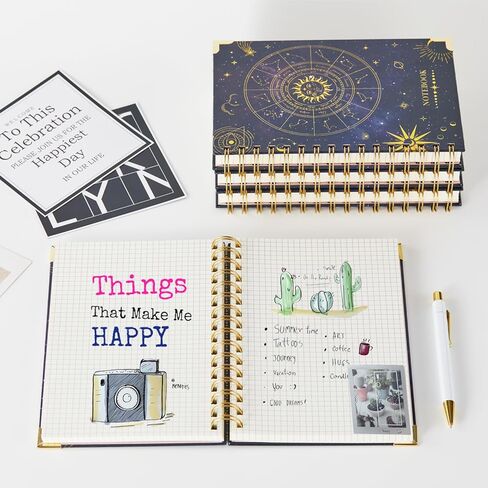 To This
Celebration
PLEASE JOIN US FOR THE
Happiest
Day
IN OUR LIFE
LYN
NOTEBOOK
Things
That Make Me
HAPPY
MEMORIES
smile
Summer time
Tattoos
Journey
Vacation
You :)
Good Dreams!
ART
Coffee
HUGS
Candles